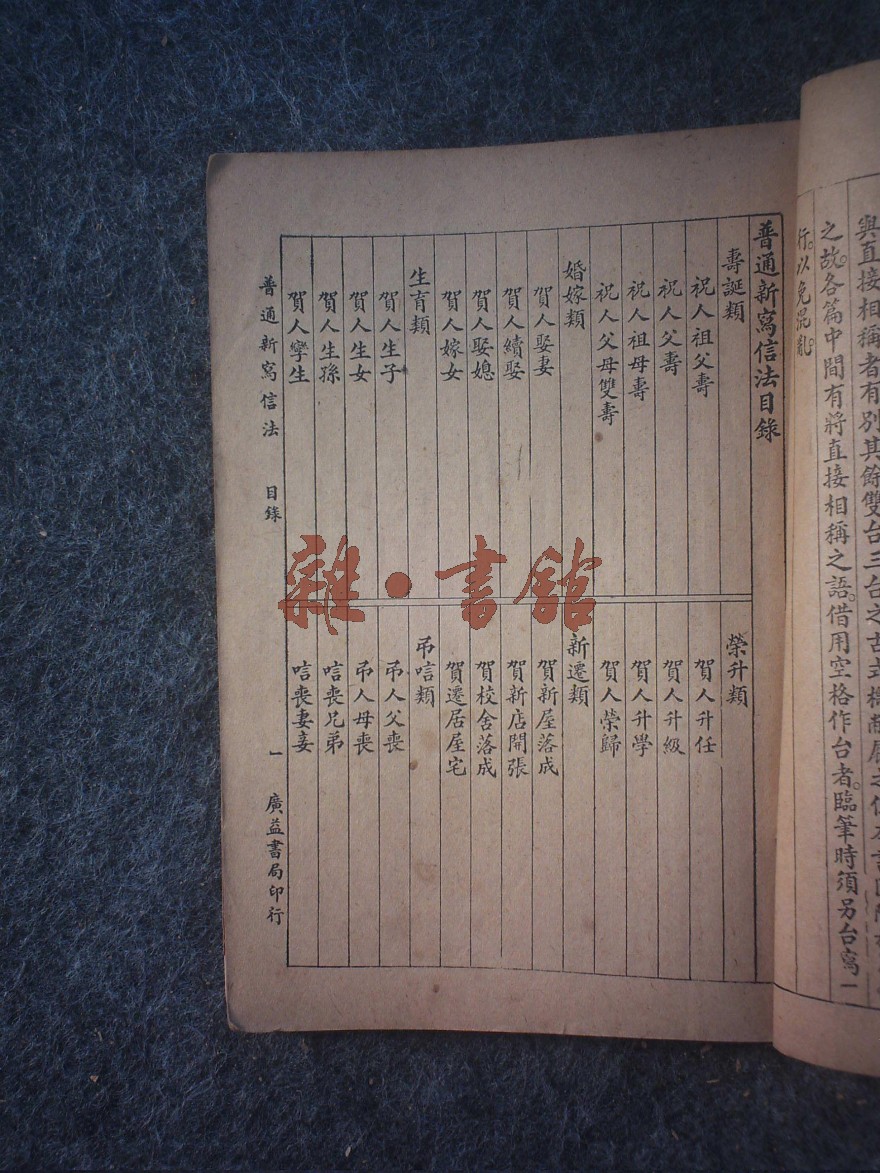 與直接相稱者有別其餘雙台三台之古式概
之故。各篇中間有將直接相稱之語。借用空格作台者。臨筆時須另台寫一
行。以免混亂。
普通新寫信法目錄
壽誕類
祝人祖父壽
祝人父壽
祝人祖母壽
祝人父母雙壽
婚嫁類
賀人娶妻
賀人續娶
賀人娶媳
賀人嫁女
生育類
賀人生子
賀人生女
賀人生孫
賀人孿生
榮升類
賀人升任
賀人升級
賀人升學
賀人榮歸
新遷類
賀新屋落成
賀新店開張
賀校舍落成
賀遷居屋宅
弔唁類
弔人父喪
弔人母喪
唁喪兄弟
唁喪妻妾
普通新寫信法 目錄 一 廣益書局印行
雜·書館